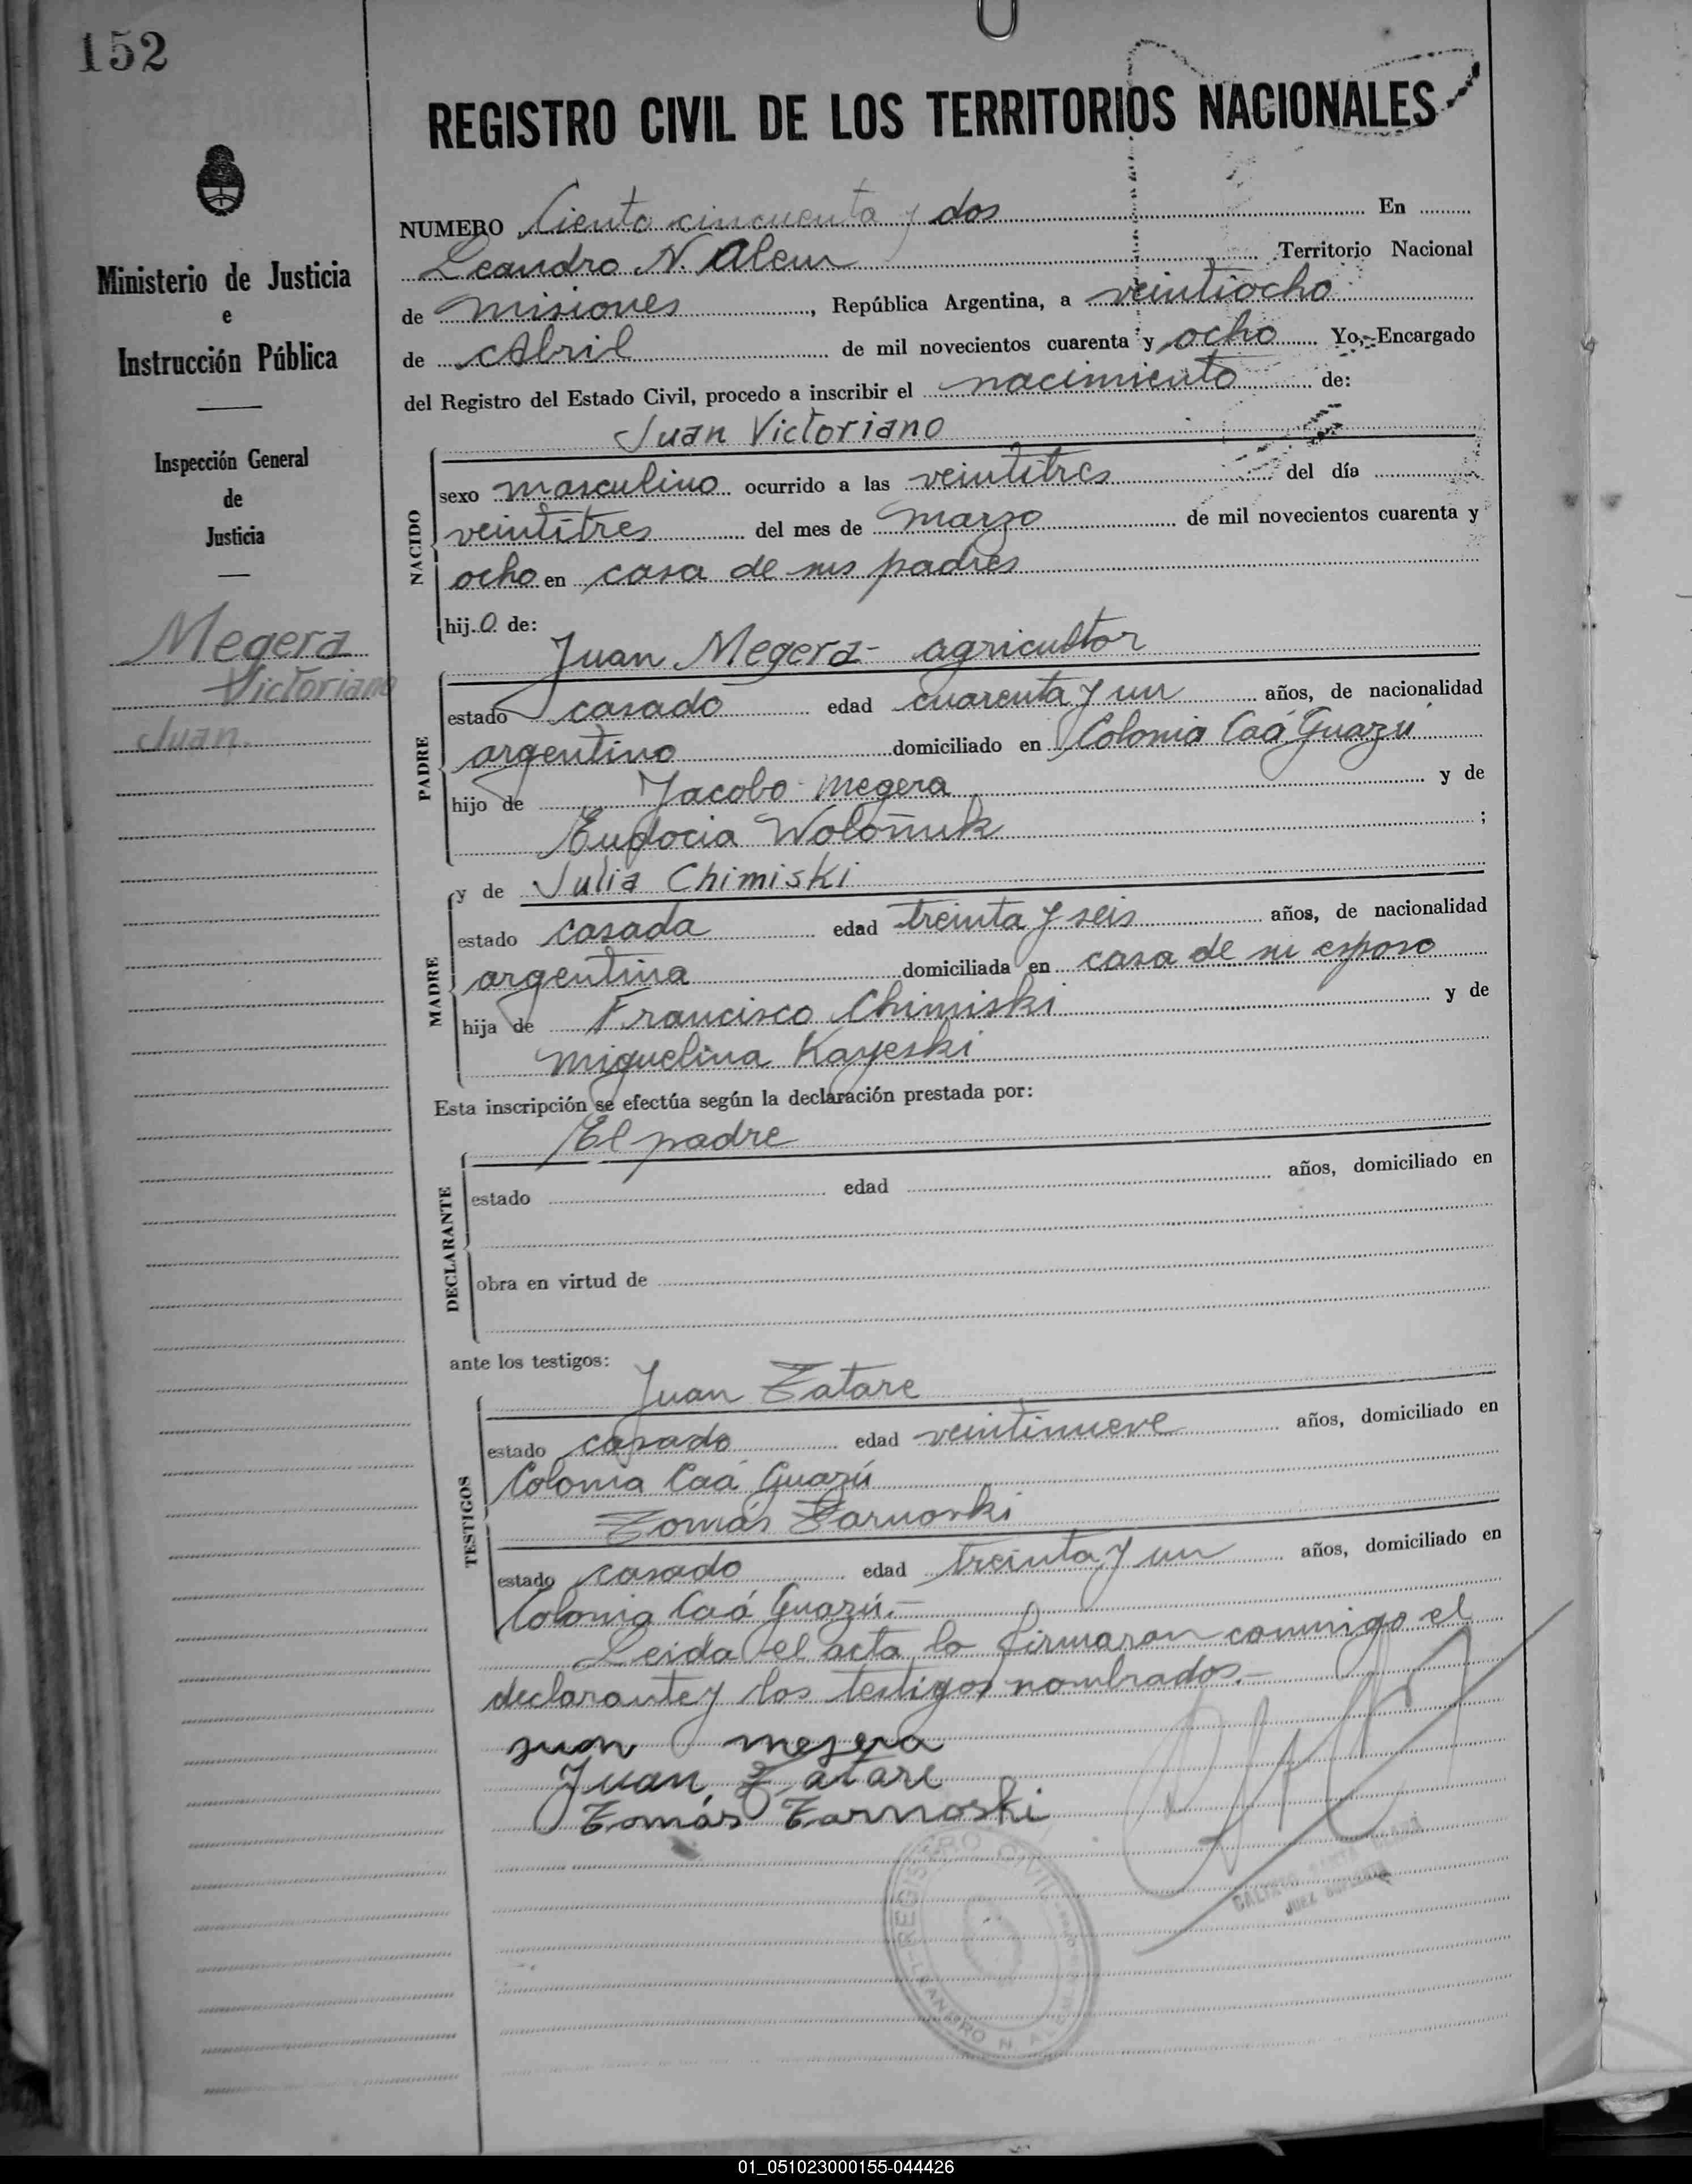 152
REGISTRO CIVIL DE LOS TERRITORIOS NACIONALES
Ministerio de Justicia
e
Instrucción Pública
Inspección General
de
Justicia
Megera
Victoriano
Juan.
NUMERO Ciento cincuenta y dos En
Leandro N. Alem Territorio Nacional
de Misiones, República Argentina, a veintiocho
de Abril de mil novecientos cuarenta y ocho Yo, Encargado
del Registro del Estado Civil, procedo a inscribir el nacimiento de:
Juan Victoriano
NACIDO
sexo masculino ocurrido a las veintitres del día
veintitres del mes de marzo de mil novecientos cuarenta y
ocho en casa de sus padres
hijo de:
Juan Megera - agricultor
PADRE
estado casado edad cuarenta y un años, de nacionalidad
argentino domiciliado en Colonia Caá Guazú
hijo de Jacobo Megera y de
Eudocia Woloñuk ;
MADRE
y de Julia Chimiski
estado casada edad treinta y seis años, de nacionalidad
argentina domiciliada en casa de su esposo
hija de Francisco Chimiski y de
Miguelina Kayeski
Esta inscripción se efectúa según la declaración prestada por:
El padre
DECLARANTE
estado edad años, domiciliado en
obra en virtud de
ante los testigos:
Juan Tatare
TESTIGOS
estado casado edad veintinueve años, domiciliado en
Colonia Caá Guazú
Tomás Tarnoski
estado casado edad treinta y un años, domiciliado en
Colonia Caá Guazú.-
Leida el acta la firmaron conmigo el
declarante y los testigos nombrados.-
Juan megera
Juan Tatare
Tomás Tarnoski
REGISTRO CIVIL
LEANDRO N. ALEM
01_051023000155-044426